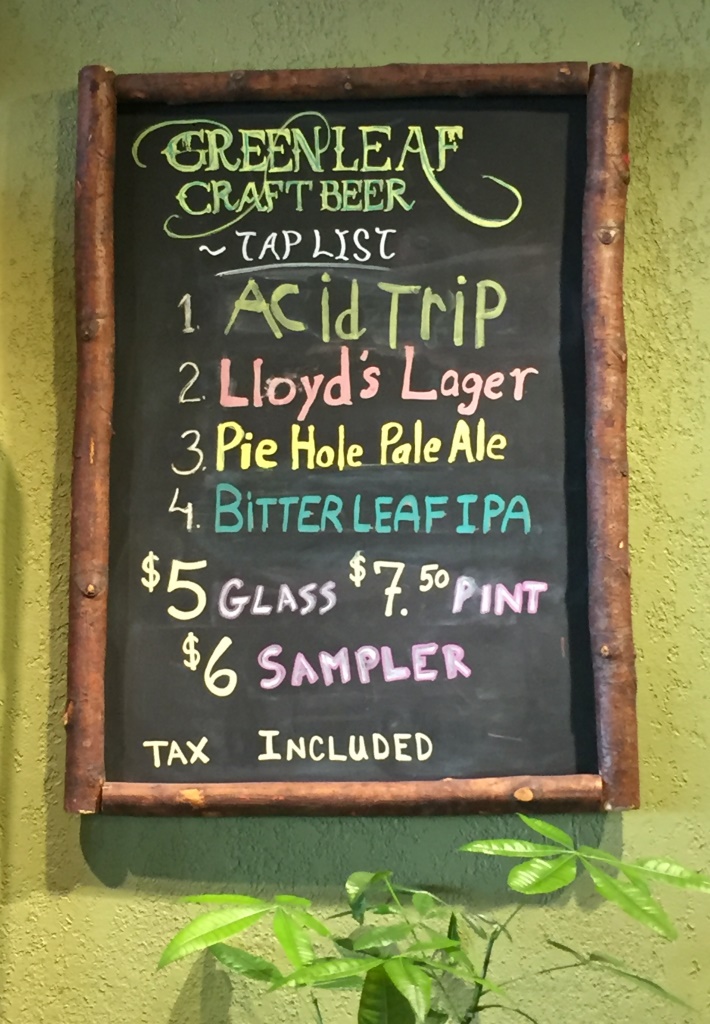 GREEN LEAF
CRAFT BEER
~ TAP LIST
1. Acid Trip
2. Lloyd's Lager
3. Pie Hole Pale Ale
4. BITTER LEAF IPA
$5 GLASS $7.50 PINT
$6 SAMPLER
TAX INCLUDED